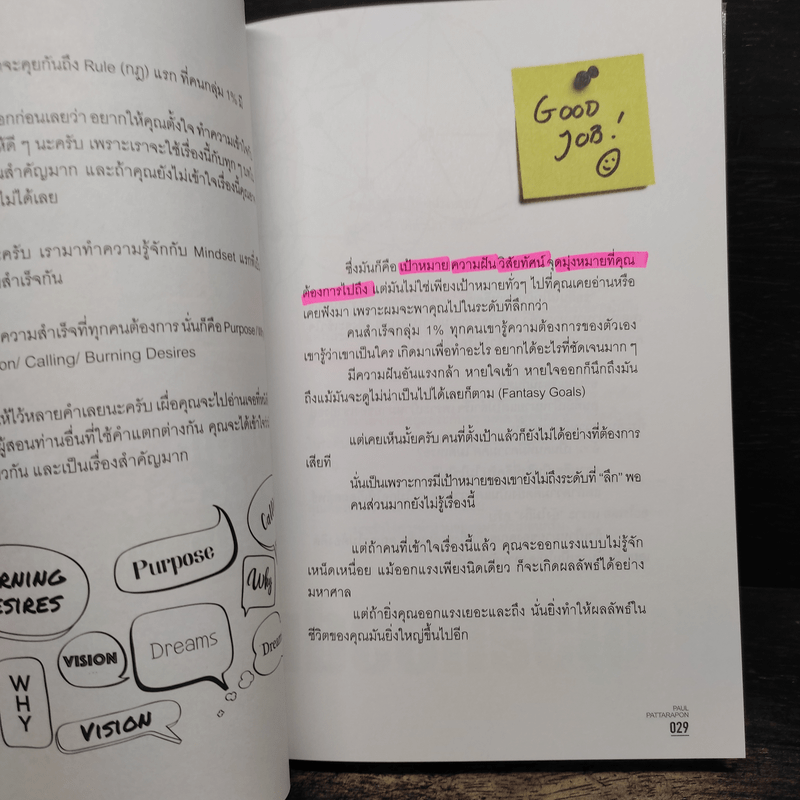 จะคุยกันถึง Rule (กฎ) แรก ที่คนกลุ่ม 1% มี
อกก่อนเลยว่า อยากให้คุณตั้งใจ ทำความเข้าใจ
ห้ดี ๆ นะครับ เพราะเราจะใช้เรื่องนี้กับทุก ๆ
นสำคัญมาก และถ้าคุณยังไม่เข้าใจเรื่องนี้คุณ
ไม่ได้เลย
ะครับ เรามาทำความรู้จักกับ Mindset แรกที่
สำเร็จกัน
ความสำเร็จที่ทุกคนต้องการ นั่นก็คือ Purpose/
on/ Calling/ Burning Desires
ห้ไว้หลายคำเลยนะครับ เผื่อคุณจะไปอ่านเจอที่
ผู้สอนท่านอื่นที่ใช้คำแตกต่างกัน คุณจะได้เข้าใจ
วกัน และเป็นเรื่องสำคัญมาก
RNING
ESIRES
Purpose
Calli
Why
VISION
Dreams
Dream
WHY
VISION
GOOD
JOB!
ซึ่งมันก็คือ เป้าหมาย ความฝัน วิสัยทัศน์ จุดมุ่งหมายที่คุณ
ต้องการไปถึง แต่มันไม่ใช่เพียงเป้าหมายทั่วๆ ไปที่คุณเคยอ่านหรือ
เคยฟังมา เพราะผมจะพาคุณไปในระดับที่ลึกกว่า
คนสำเร็จกลุ่ม 1% ทุกคนเขารู้ความต้องการของตัวเอง
เขารู้ว่าเขาเป็นใคร เกิดมาเพื่อทำอะไร อยากได้อะไรที่ชัดเจนมาก ๆ
มีความฝันอันแรงกล้า หายใจเข้า หายใจออกก็นึกถึงมัน
ถึงแม้มันจะดูไม่น่าเป็นไปได้เลยก็ตาม (Fantasy Goals)
แต่เคยเห็นมั้ยครับ คนที่ตั้งเป้าแล้วก็ยังไม่ได้อย่างที่ต้องการ
เสียที
นั่นเป็นเพราะการมีเป้าหมายของเขายังไม่ถึงระดับที่ “ลึก” พอ
คนส่วนมากยังไม่รู้เรื่องนี้
แต่ถ้าคนที่เข้าใจเรื่องนี้แล้ว คุณจะออกแรงแบบไม่รู้จัก
เหน็ดเหนื่อย แม้ออกแรงเพียงนิดเดียว ก็จะเกิดผลลัพธ์ได้อย่าง
มหาศาล
แต่ถ้ายิ่งคุณออกแรงเยอะและถึง นั่นยิ่งทำให้ผลลัพธ์ใน
ชีวิตของคุณมันยิ่งใหญ่ขึ้นไปอีก
PAUL
PATTARAPON
029